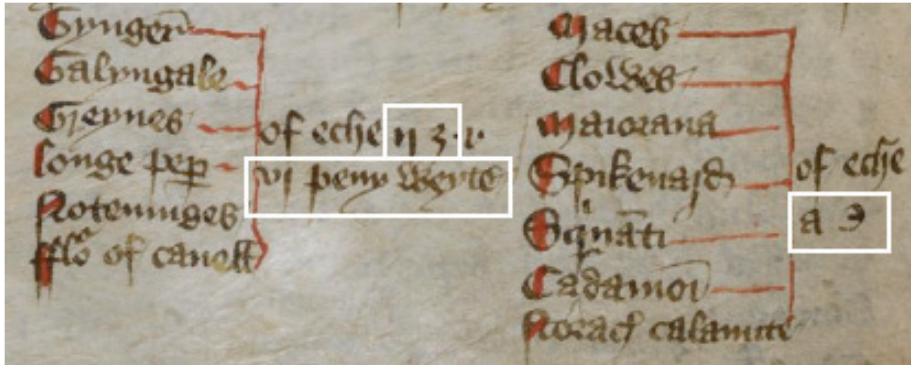 Gynger
Galyngale
Greynes
longe pep
Notemuges
fflo of canell
of eche ij ʒ.
vj peny weyte
Maces
Clowes
Maiorana
Spikenard
Squināti
Cadamoī
Storac calamite
of eche
a ℈